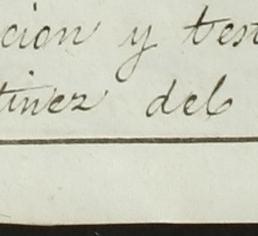 cion y test
tinez del